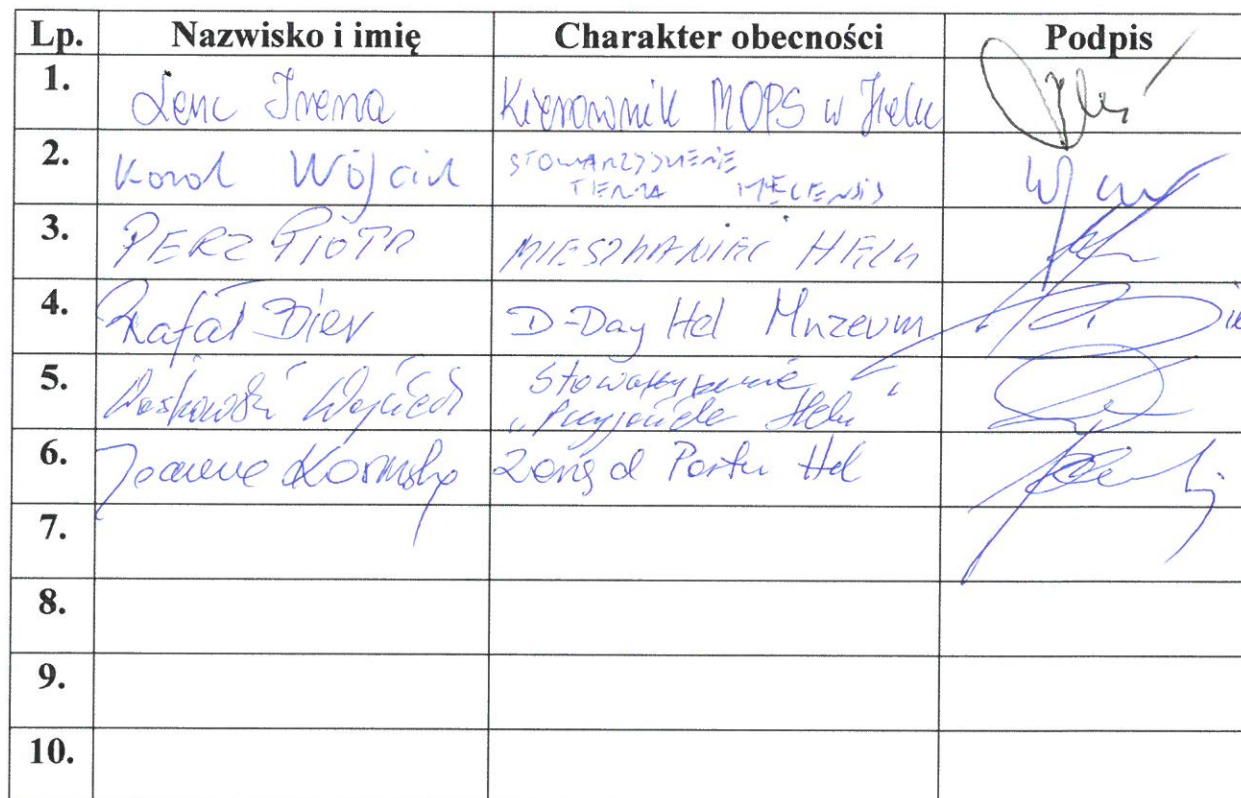 Lp. Nazwisko i imię Charakter obecności Podpis
1. Lenc Irena Kierownik MOPS w Helu
2. Karol Wójcik STOWARZYSZENIE
TERRA HELENSIS
3. PERZ PIOTR MIESZKANIEC HELU
4. Rafał D-Day Hel Muzeum
5. Wojciech Stowarzyszenie
"Przyjaciele Helu"
6. Joanna Port Hel
7.
8.
9.
10.